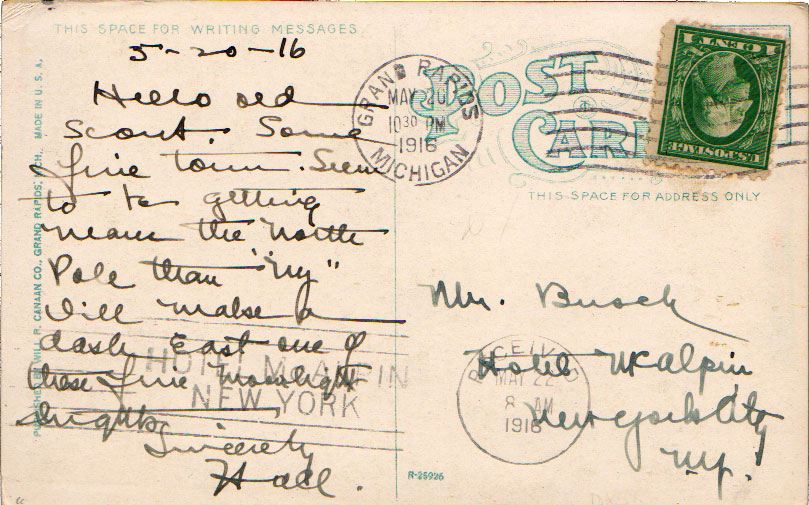 THIS SPACE FOR WRITING MESSAGES
5-20-16
Hello old
Scout. Some
fine town. Seem
to be getting
near the North
Pole than "Ny"
Will make a
dash East one of
these fine moonlight
nights
Sincerely
Hall.
PUBLISHED BY WILL P. CANAAN CO., GRAND RAPIDS, MICH. MADE IN U.S.A.
GRAND RAPIDS
MAY 20
10 30 PM
1916
MICHIGAN
POST
CARD
U.S. POSTAGE
THIS SPACE FOR ADDRESS ONLY
Mr. Busch
Hotel McAlpin
New York City
N.Y.
RECEIVED
MAY 22
8 AM
1916
HOTEL McALPIN
NEW YORK
R-25926